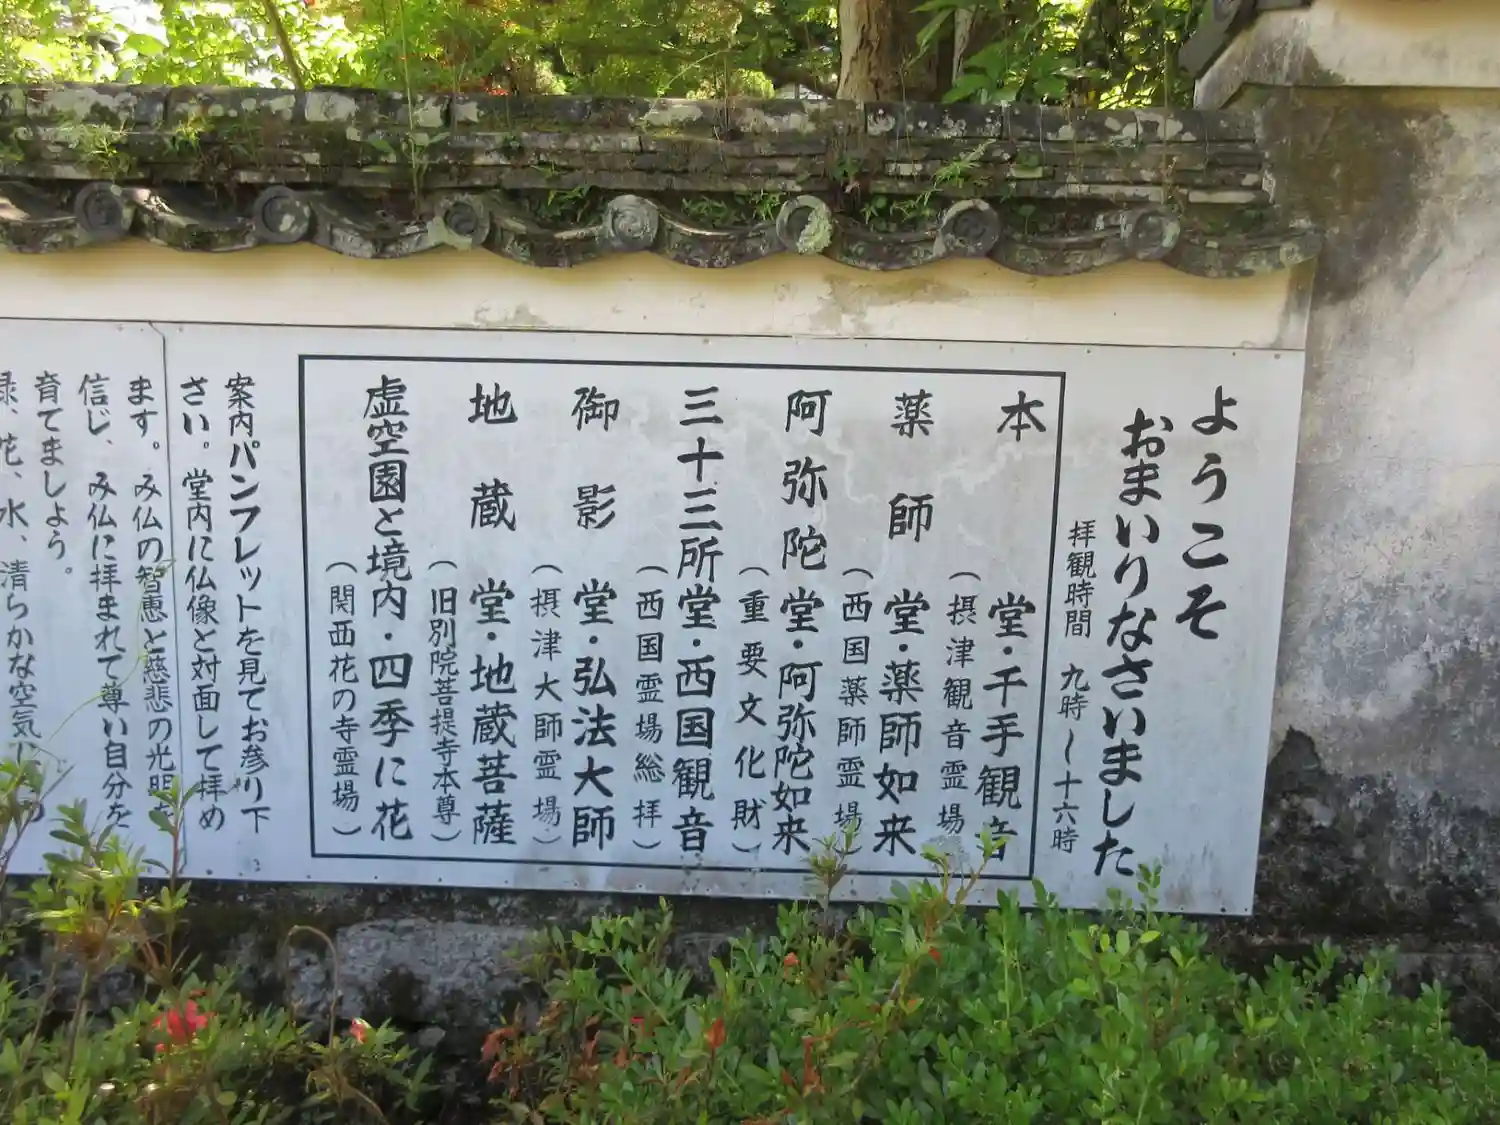 ようこそ
おまいりなさいました
拝観時間 九時〜十六時
本堂・千手観音
(摂津観音霊場)
薬師堂・薬師如来
(西国薬師霊場)
阿弥陀堂・阿弥陀如来
(重要文化財)
三十三所堂・西国観音
(西国霊場総拝)
御影堂・弘法大師
(摂津大師霊場)
地蔵堂・地蔵菩薩
(旧別院菩提寺本尊)
虚空園と境内・四季に花
(関西花の寺霊場)
案内パンフレットを見てお参り下
さい。堂内に仏像と対面して拝め
ます。み仏の智恵と慈悲の光明を
信じ、み仏に拝まれて尊い自分を
育てましょう。
緑、花、水、清らかな空気